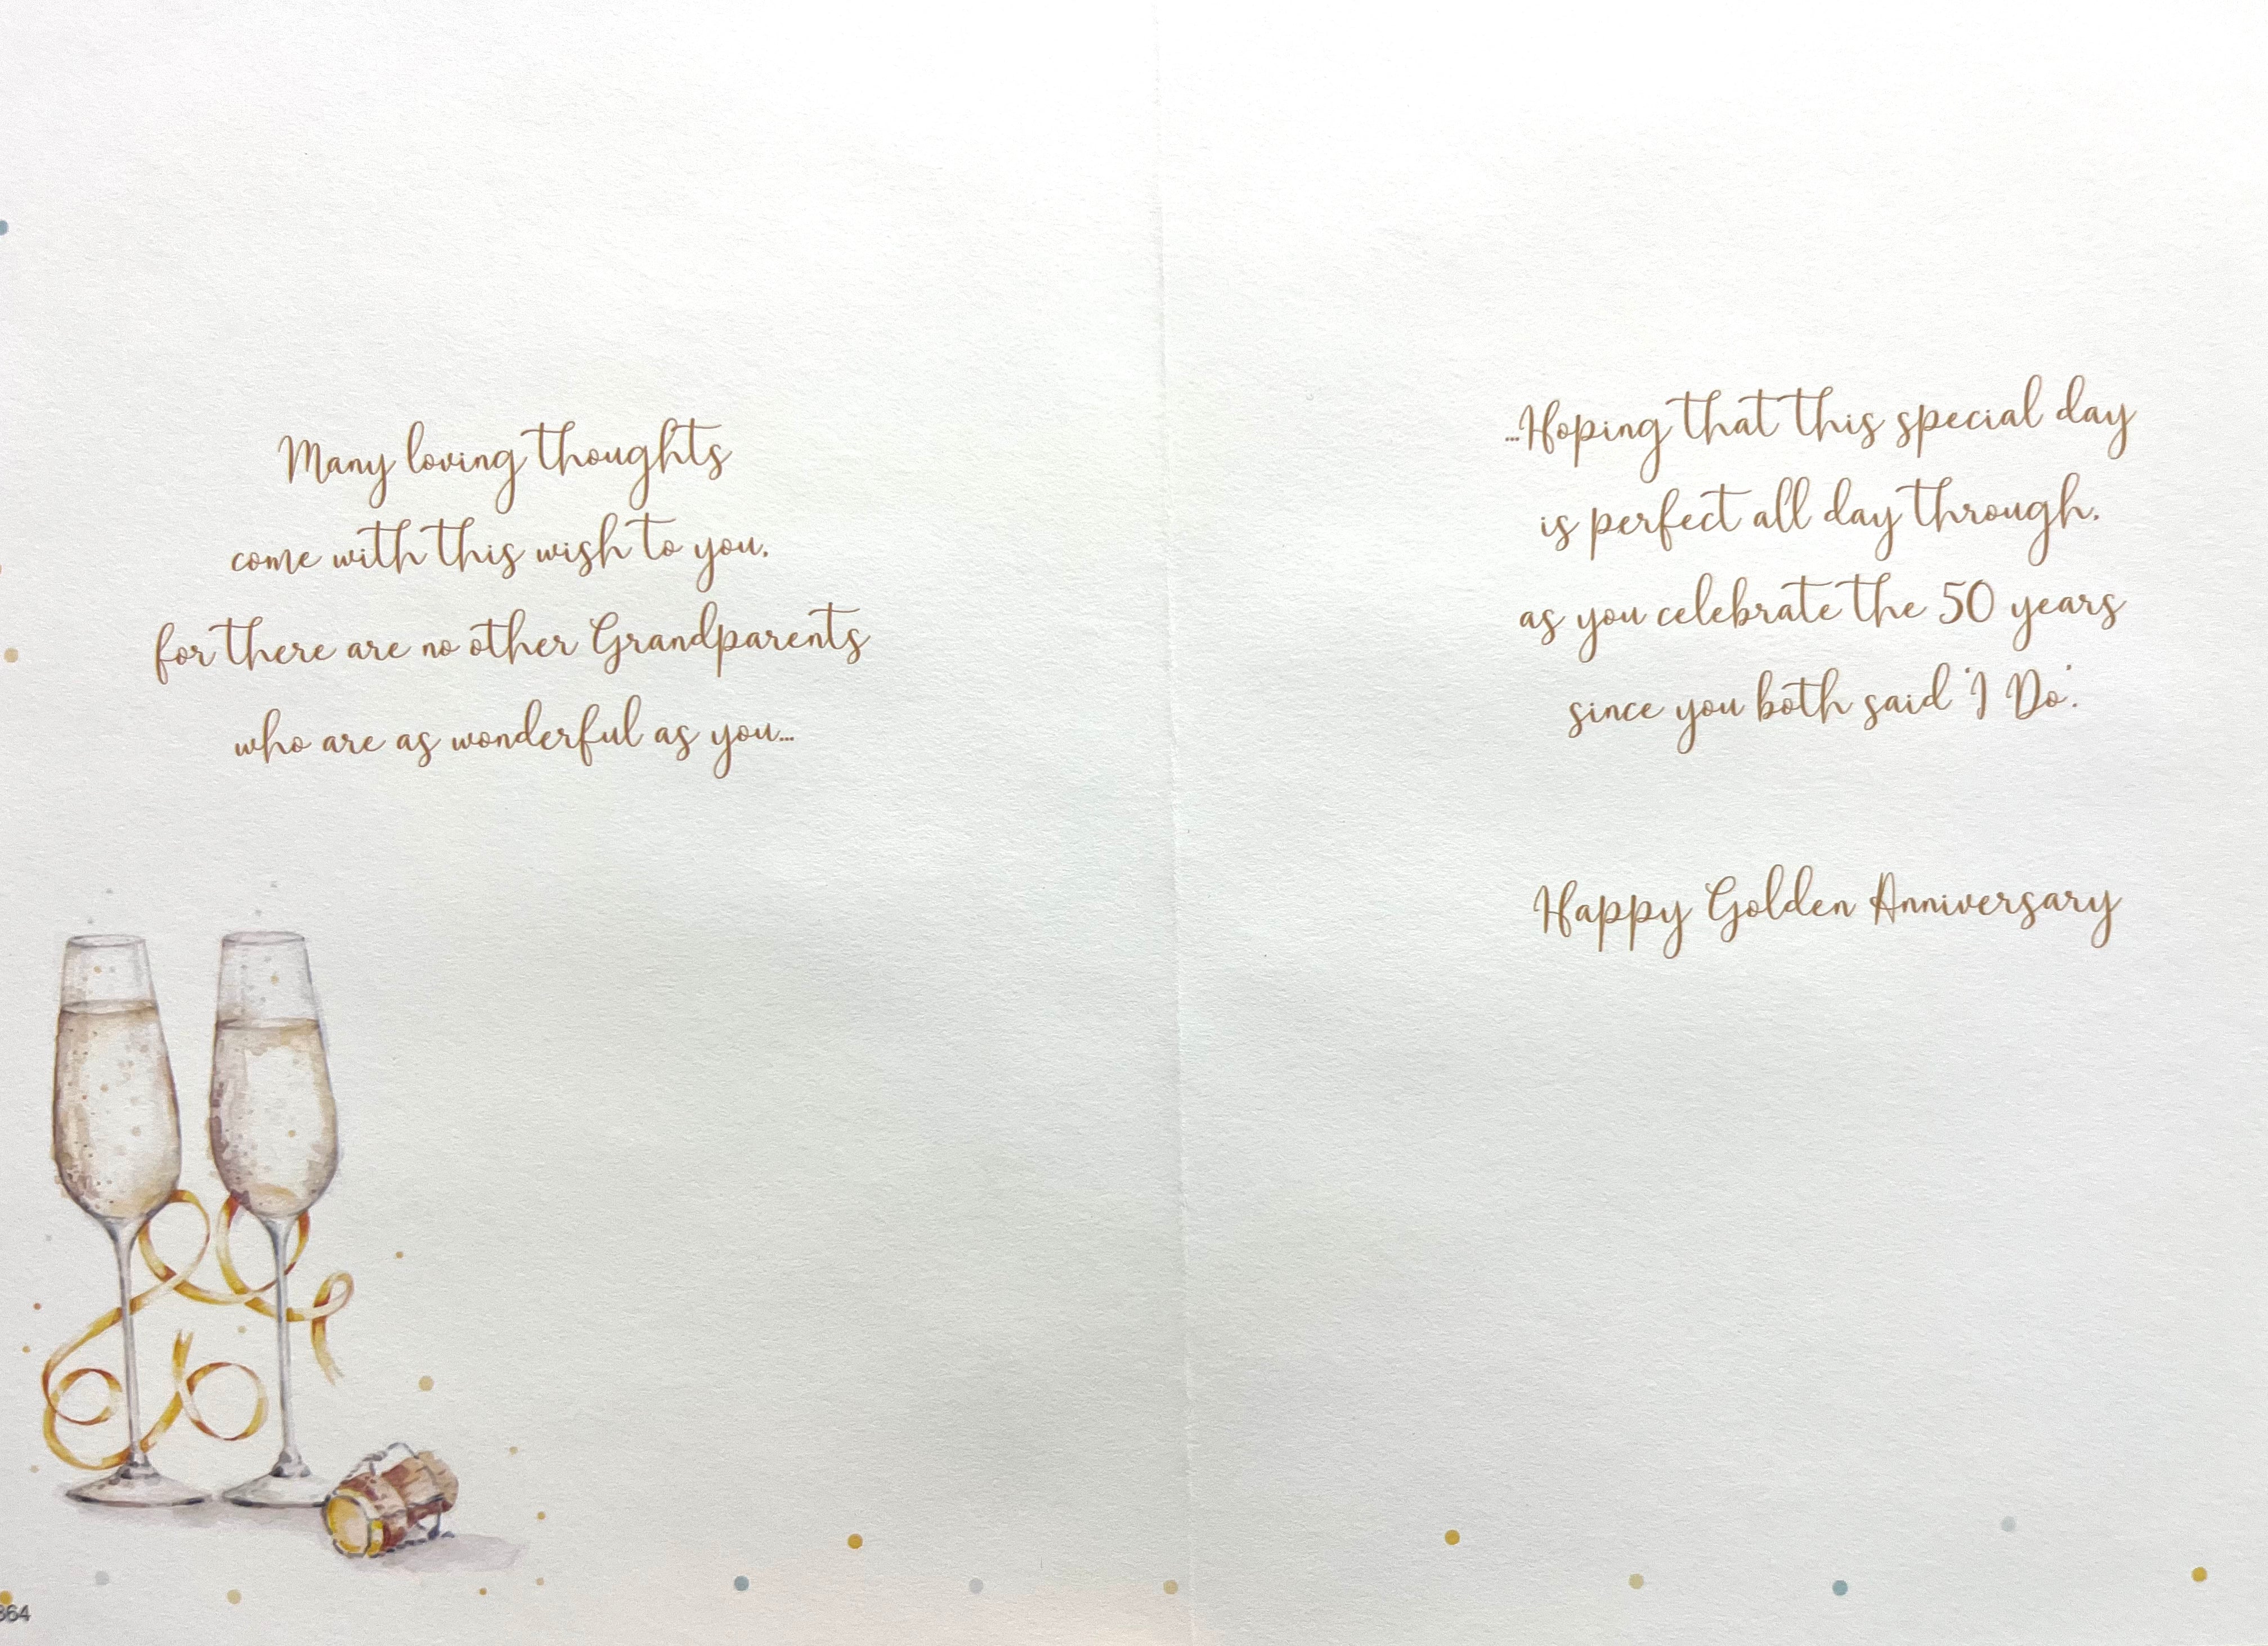 Many loving thoughts
come with this wish to you,
for there are no other Grandparents
who are as wonderful as you...
...Hoping that this special day
is perfect all day through,
as you celebrate the 50 years
since you both said 'I Do'.
Happy Golden Anniversary
364